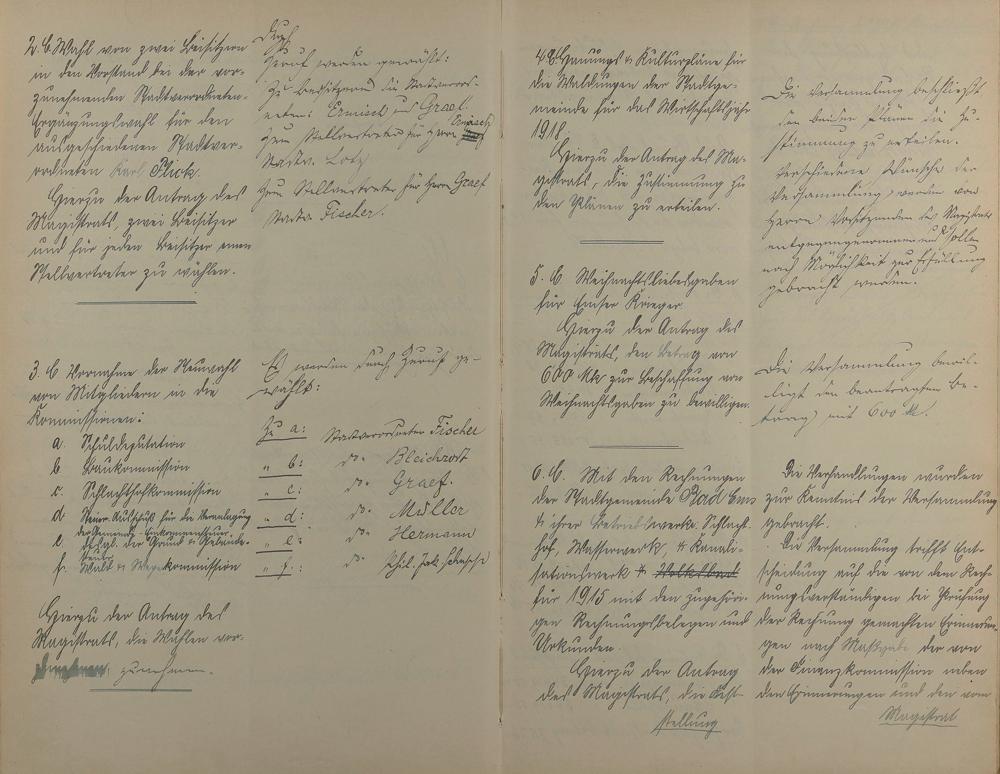 2. C. Wahl von zwei Beisitzern
in den Vorstand bei der vor-
zunehmenden Stadtverordneten-
Ergänzungswahl für den
ausgeschiedenen Stadtver-
ordneten Karl Flick.
Hierzu der Antrag des
Magistrats, zwei Beisitzer
und für jeden Beisitzer einen
Stellvertreter zu wählen.
Durch
Zuruf werden gewählt:
Zu Beisitzern die Stadtverord-
neten: Ermisch und Graef.
Zum Stellvertreter für Herrn Ermisch
Stadtv. Lotz
Zum Stellvertreter für Herrn Graef
Stadtv. Fischer.
3. C Vornahme der Neuwahl
von Mitgliedern in die
Kommissionen:
a. Schuldeputation
b Baukommission
c. Schlachthofkommission
d Steuer-Ausschuß für die Veranlagung
der Gemeinde-Einkommensteuer
e. desgl. der Grund- & Gebäude-
steuer
f. Wald & Wegekommission
Hierzu der Antrag des
Magistrats, die Wahlen vor-
zunehmen.
Es werden durch Zuruf ge-
wählt:
Zu a: Stadtverordneter Fischer
" b: do. Bleichrodt
" c: do. Graef.
" d: do. Müller
" e: do. Hermann
" f: do. Phil. Jak.
4. C. Hauungs & Kulturpläne für
die Waldungen der Stadtge-
meinde für das Wirtschaftsjahr
1918.
Hierzu der Antrag des Ma-
gistrats, die Zustimmung zu
den Plänen zu erteilen.
Die Versammlung beschließt
den beiden Plänen die Zu-
stimmung zu erteilen.
Verschiedene Wünsche der
Versammlung werden von
Herrn Vorsitzenden des Magistrats
entgegengenommen und sollen
nach Möglichkeit zur Erfüllung
gebracht werden.
5. C. Weihnachtsliebesgaben
für Emser Krieger.
Hierzu der Antrag des
Magistrats, den Betrag von
600 Mk zur Beschaffung von
Weihnachtsgaben zu bewilligen.
Die Versammlung bewil-
ligt den beantragten Be-
trag mit 600 M.
6. C. Mit den Rechnungen
der Stadtgemeinde Bad Ems
& ihrer Betriebswerke: Schlacht-
hof, Wasserwerk, & Kanali-
sationswerk &
für 1915 mit den zugehöri-
gen Rechnungsbelegen und
Urkunden.
Hierzu der Antrag
des Magistrats, die Fest-
stellung
Die Verhandlungen wurden
zur Kenntnis der Versammlung
gebracht.
Die Versammlung trifft Ent-
scheidung auf die von dem Rech-
nungsverständigen bei Prüfung
der Rechnung gemachten Erinnerun-
gen nach Maßgabe der von
der Finanzkommission neben
den Erinnerungen und den vom
Magistrat